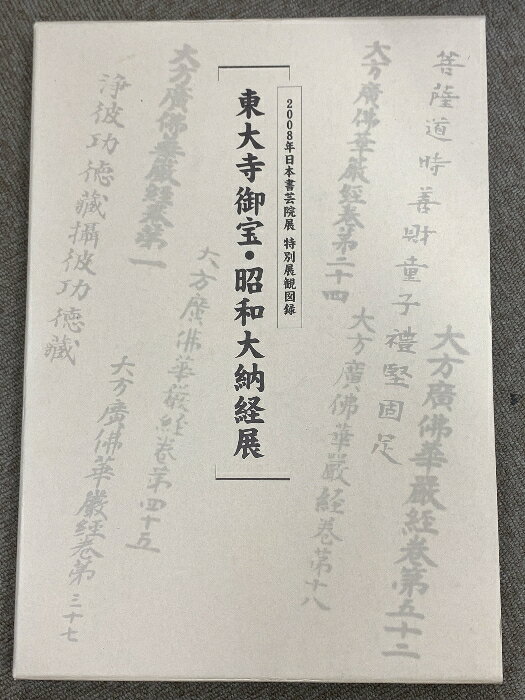 菩薩道時善財童子禮堅固足
大方廣佛華嚴経卷第五十二
大方廣佛華嚴経卷第二十四
大方廣佛華嚴経卷第十八
2008年日本書芸院展 特別展観図録
東大寺御宝・昭和大納経展
大方廣佛華嚴経卷第一
大方廣佛華嚴経卷第四十五
淨彼功徳藏攝彼功徳藏
大方廣佛華嚴経卷第三十七